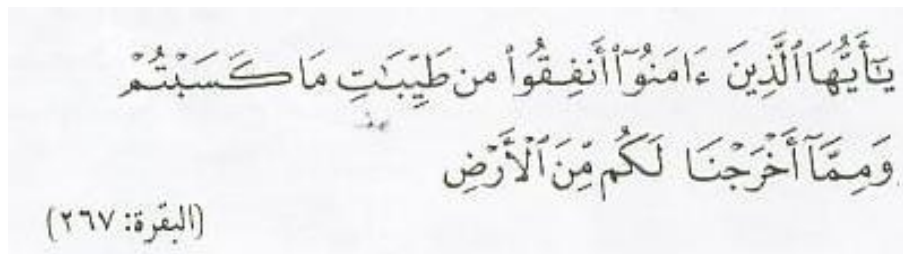 يَٰٓأَيُّهَا ٱلَّذِينَ ءَامَنُوٓا۟ أَنفِقُوا۟ من طَيِّبَٰتِ مَا كَسَبْتُمْ
وَمِمَّآ أَخْرَجْنَا لَكُم مِّنَ ٱلْأَرْضِ
(البقرة: ٢٦٧)